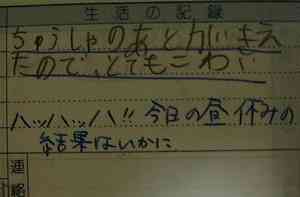 生活の記録
ちゅうしゃのあとがきえ
たので、とてもこわい
ハッハッハ!! 今日の昼休みの
結果はいかに
連絡